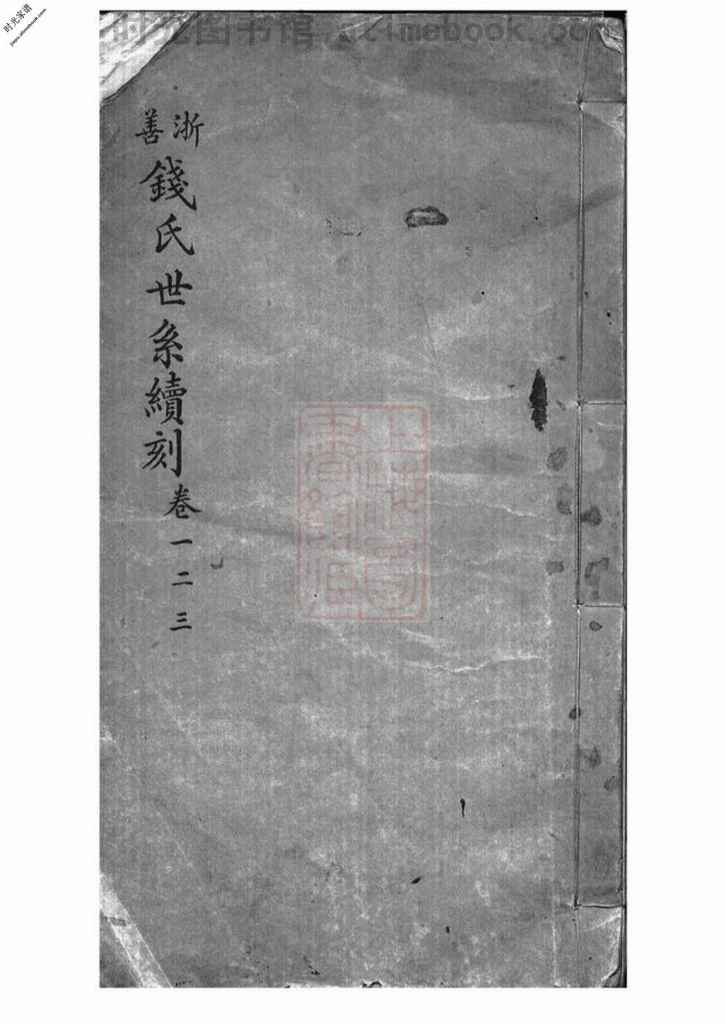 时光图书馆 timebook.com
时光家谱
浙善
錢氏世系續刻
卷一二三